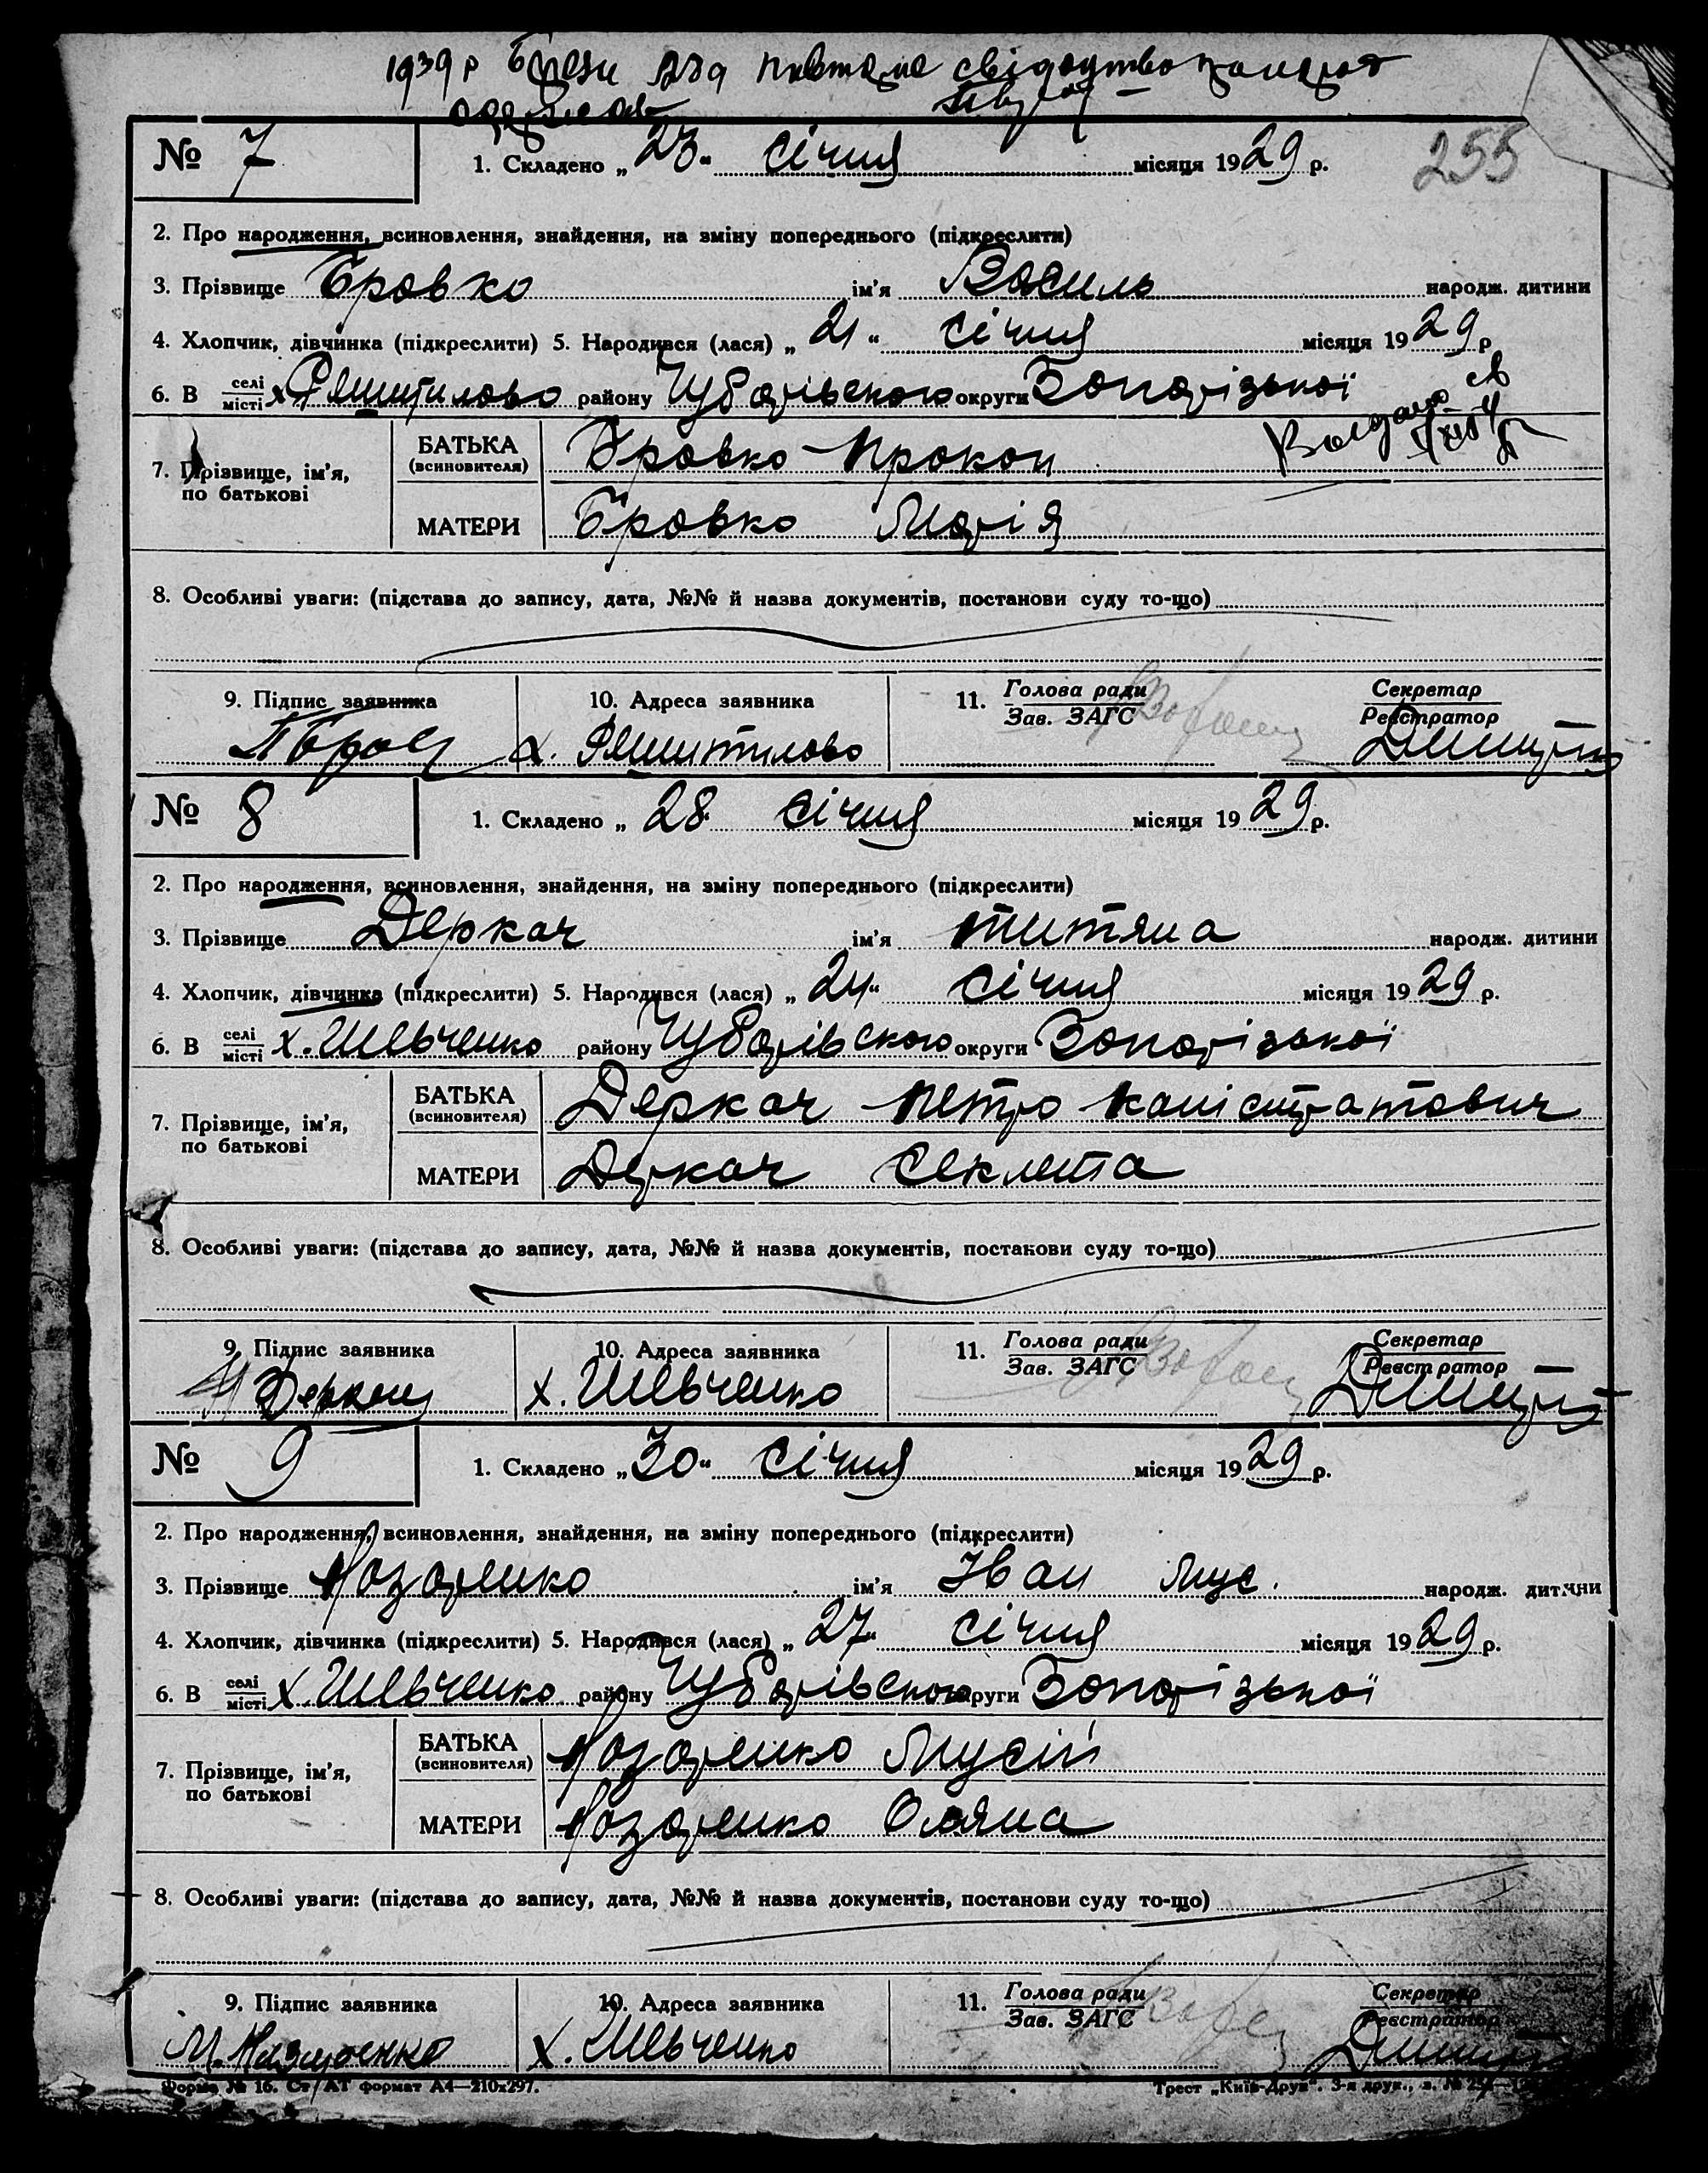 1939 р свідоцтво
№ 7 1. Складено „23" січня місяця 1929 р. 255
2. Про народження, всиновлення, знайдення, на зміну попереднього (підкреслити)
3. Прізвище Бровко ім'я Василь народж. дитини
4. Хлопчик, дівчинка (підкреслити) 5. Народився (лася) „21" січня місяця 1929 р
6. В селі місті х району Чубарівського округи Запорізької
БАТЬКА (всиновителя) Бровко Прокоп
7. Прізвище, ім'я, по батькові
МАТЕРИ Бровко Марія
8. Особливі уваги: (підстава до запису, дата, №№ й назва документів, постанови суду то-що)
9. Підпис заявника 10. Адреса заявника 11. Голова ради Зав. ЗАГС Секретар Реєстратор
х.
№ 8 1. Складено „28" січня місяця 1929 р.
2. Про народження, всиновлення, знайдення, на зміну попереднього (підкреслити)
3. Прізвище Деркач ім'я Титяна народж. дитини
4. Хлопчик, дівчинка (підкреслити) 5. Народився (лася) „24" січня місяця 1929 р.
6. В селі місті х. Шевченко району Чубарівського округи Запорізької
БАТЬКА (всиновителя) Деркач Петро Каністратович
7. Прізвище, ім'я, по батькові
МАТЕРИ Деркач Секлета
8. Особливі уваги: (підстава до запису, дата, №№ й назва документів, постанови суду то-що)
9. Підпис заявника 10. Адреса заявника 11. Голова ради Зав. ЗАГС Секретар Реєстратор
Деркач х. Шевченко
№ 9 1. Складено „30" січня місяця 1929 р.
2. Про народження, всиновлення, знайдення, на зміну попереднього (підкреслити)
3. Прізвище Назаренко ім'я Іван Мус. народж. дитини
4. Хлопчик, дівчинка (підкреслити) 5. Народився (лася) „27" січня місяця 1929 р.
6. В селі місті х. Шевченко району Чубарівського округи Запорізької
БАТЬКА (всиновителя) Назаренко Мусій
7. Прізвище, ім'я, по батькові
МАТЕРИ Назаренко Оляна
8. Особливі уваги: (підстава до запису, дата, №№ й назва документів, постанови суду то-що)
9. Підпис заявника 10. Адреса заявника 11. Голова ради Зав. ЗАГС Секретар Реєстратор
М. Назаренко х. Шевченко
Форма № 16. Ст/АТ формат А4—210х297. Трест „Київ-Друк". 3-я друк., з. №